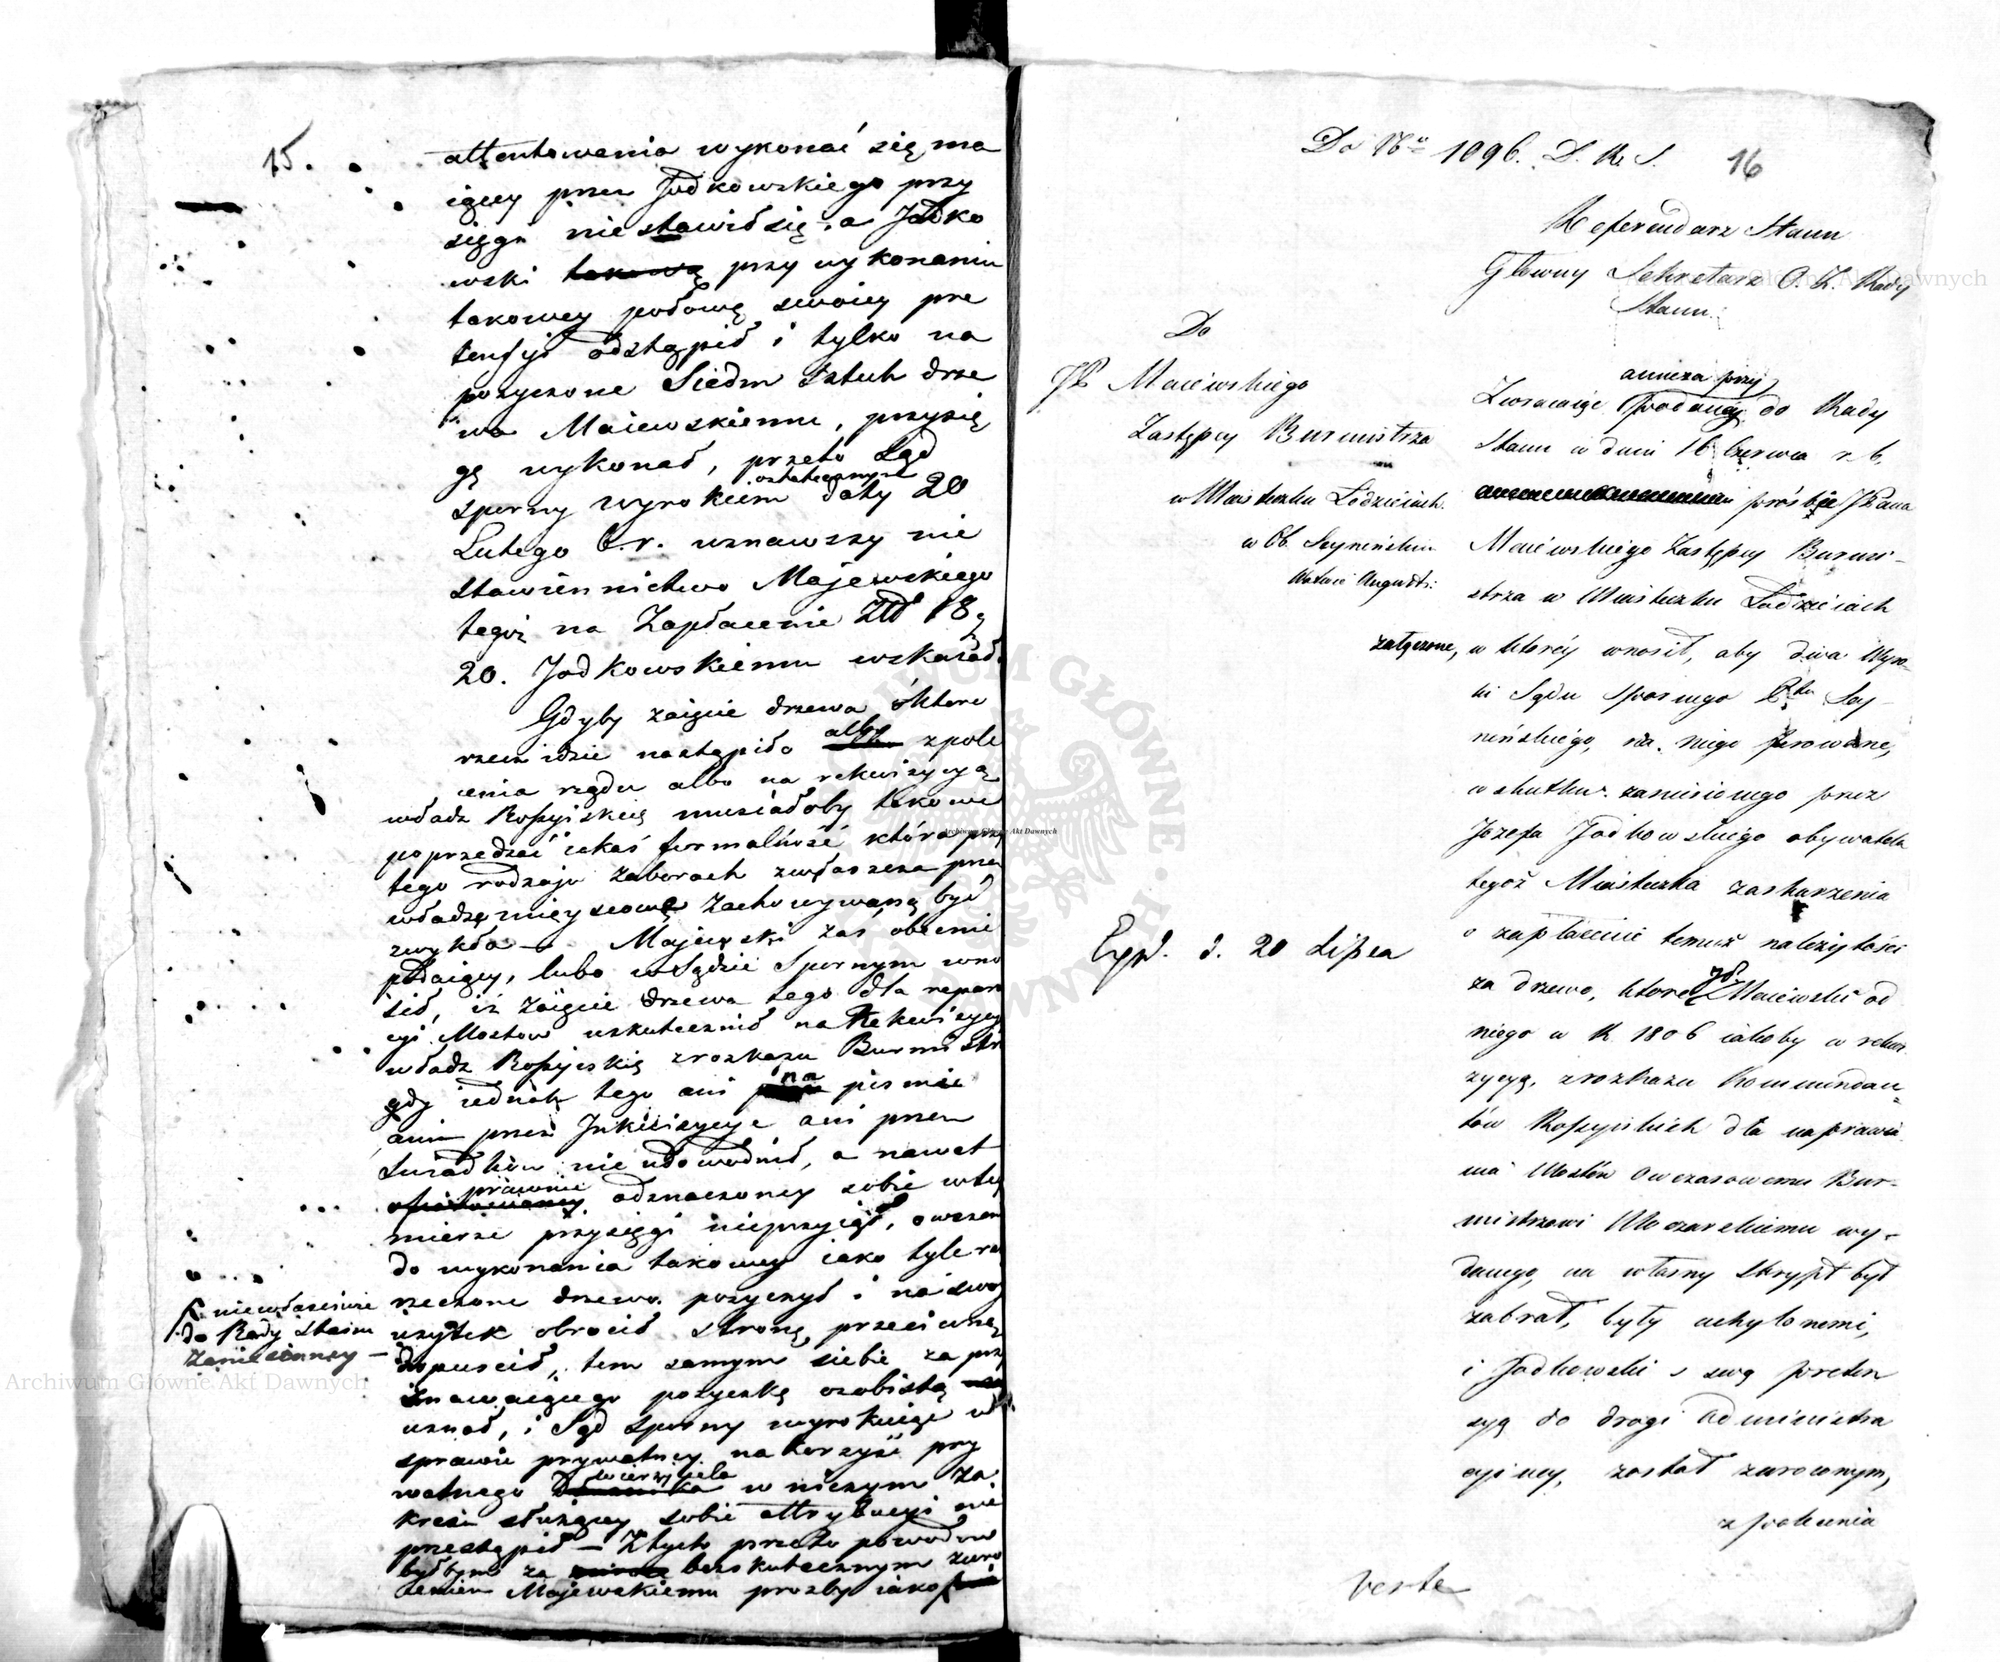 15.
attentowania wykonać się ma
iącey przez Jodkowskiego przy
sięgi nie stawił się, a Jodko
wski takową przy wykonaniu
takowey połowę swoiey pre
tensyi odstąpił i tylko na
pożyczone Siedm sztuk drze
wa Maiewskiemu, przysię
gę wykonał, przeto Sąd
sporny wyrokiem ostatecznym daty 20
Lutego b.r. uznawszy nie
stawiennictwo Majewskiego
tegoż na Zapłacenie Złł 18 g
20. Jodkowskiemu wskazał.
Gdyby zaięcie drzewa o które
rzecz idzie nastąpiło albo z pole
cenia rządu albo na rekwizycyą
władz Rossyiskię musiałoby takowe
poprzedzać iakaś formalność która przy
tego rodzaju zaborach zwłaszcza przez
władzę mieyscową zachowywaną być
zwykła — Majewski zaś obecnie
podaiący, lubo w Sądzie Spornym wno
sił, iż zaięcie drzewa tego dla repara
cyi Mostow uskutecznił na Rekwizycyą
władz Rossyiskię z rozkazu Burmistrza
gdy iednak tego ani na piśmie
ani przez Inkwizycye ani przez
Świadków nie udowodnił, a nawet
prawnie odznaczoney sobie w tey
mierze przysięgi nieprzyiął, owszem
do wykonania takowey iako tyle ra
rzeczone drzewo pożyczył i na swoy
użytek obrocił stronę przeciwną
dopuścił, tem samym siebie za przy
znawaiącego pożyczkę osobistą
uznał, i Sąd sporny wyrokuiąc w
sprawie prywatney na korzyść pry
watnego wierzyciela w niczym za
kresu służącey sobie attrybucyi nie
przestąpił — Z tych przeto powodow
byłbym za bezskutecznym zwro
ceniem Majewskiemu prozby iako
niewłaściwie
do Rady Stanu
Zaniesioney —
Do No 1096. D. R. S.
16
Referendarz Stanu
Główny Sekretarz O. Z. Rady
Stanu.
Do
JP Maiewskiego
Zastępcy Burmistrza
w Miasteczku Łodzieiach.
w Ob. Seyneńskim
Augusts:
Exp. d. 20 Lipca
annexa przy
Zwracaiąc podaney do Rady
Stanu w dniu 16 Czerwca r. b.
prośbie JPana
Maiewskiego Zastępcy Burmi-
strza w Miasteczku Łodzieiach
załączone, w którey wnosił, aby dwa Wyro-
ki Sądu Spornego Ptu Sey-
neńskiego, na niego ferowane,
w skutku zaniesionego przez
Józefa Jodkowskiego obywatela
tegoż Miasteczka zaskarzenia
o zapłacenie temuż należytości
za drzewo, które JP. Maiewski od
niego w R. 1806 iakoby w rekwi
zycyą, z rozkazu Kommendan-
tów Rossyiskich dla naprawia
nia Mostów owczasowemu Bur-
mistrzowi Moczarskiemu wy-
danego, na własny skrypt był
zabrał, były uchylonemi,
i Jodkowski z swą preten
syą do drogi Administra
cyiney, został zwróconym,
z polecenia
verte
Archiwum Główne Akt Dawnych